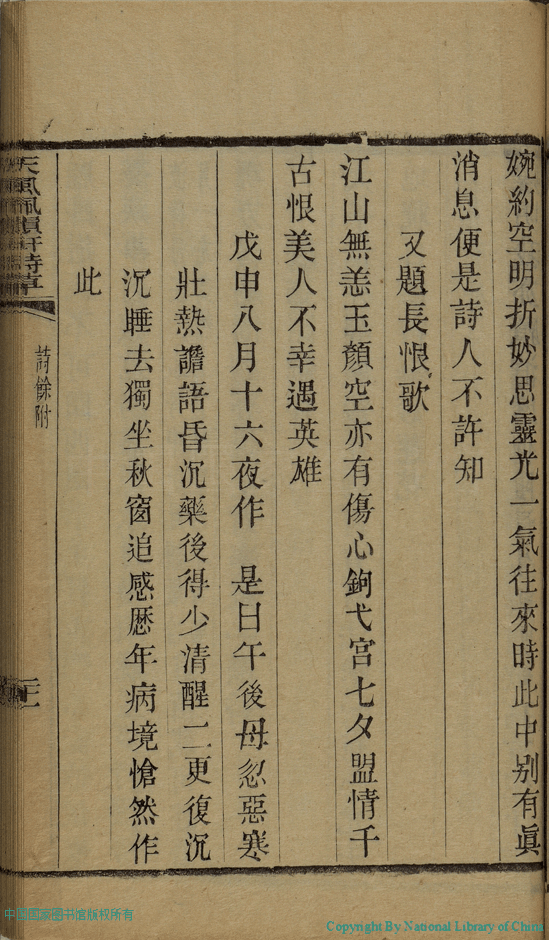 婉約空明折妙思靈光一氣往來時此中别有眞
消息便是詩人不許知
又題長恨歌
江山無恙玉顏空亦有傷心鉤弋宮七夕盟情千
古恨美人不幸遇英雄
戊申八月十六夜作　是日午後母忽惡寒
壯熱譫語昏沉藥後得少清醒二更復沉
沉睡去獨坐秋窗追感歴年病境愴然作
此
詩餘附
中国国家图书馆版权所有
Copyright By National Library of China